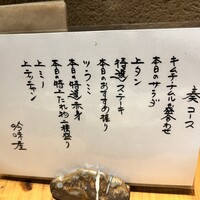 奏コース
キムチ・ナムル盛合わせ
本日のサラダ
上タン
特選ステーキ
本日のおすすめ握り
ツラミ
本日の特選赤身
本日の特上たれ物二種盛り
上ミノ
上テッチャン
吟味屋